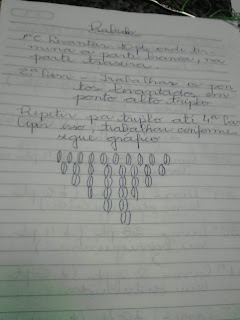 Rabado
1ª C Levantar 12 pts onde ter
mina a parte branca, na
parte traseira.
2ª Carr - trabalhar os pon
tos levantados em
ponto alto triplo
Repetir pa triplo até 4ª Car
após isso, trabalhar conforme
segue gráfico